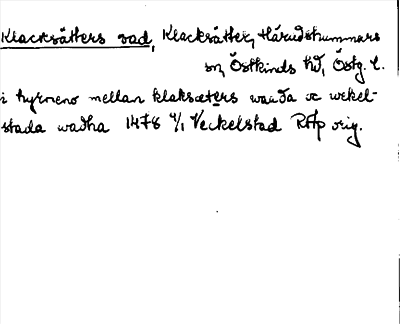 Klacksätters vad, Klacksätter, Häradshammars
sn, Östkinds hd, Östg. l.
i hyrneno mellan klaksæters wadha oc wekel-
stada wadha 1478 4/1 Veckelstad RAp orig.